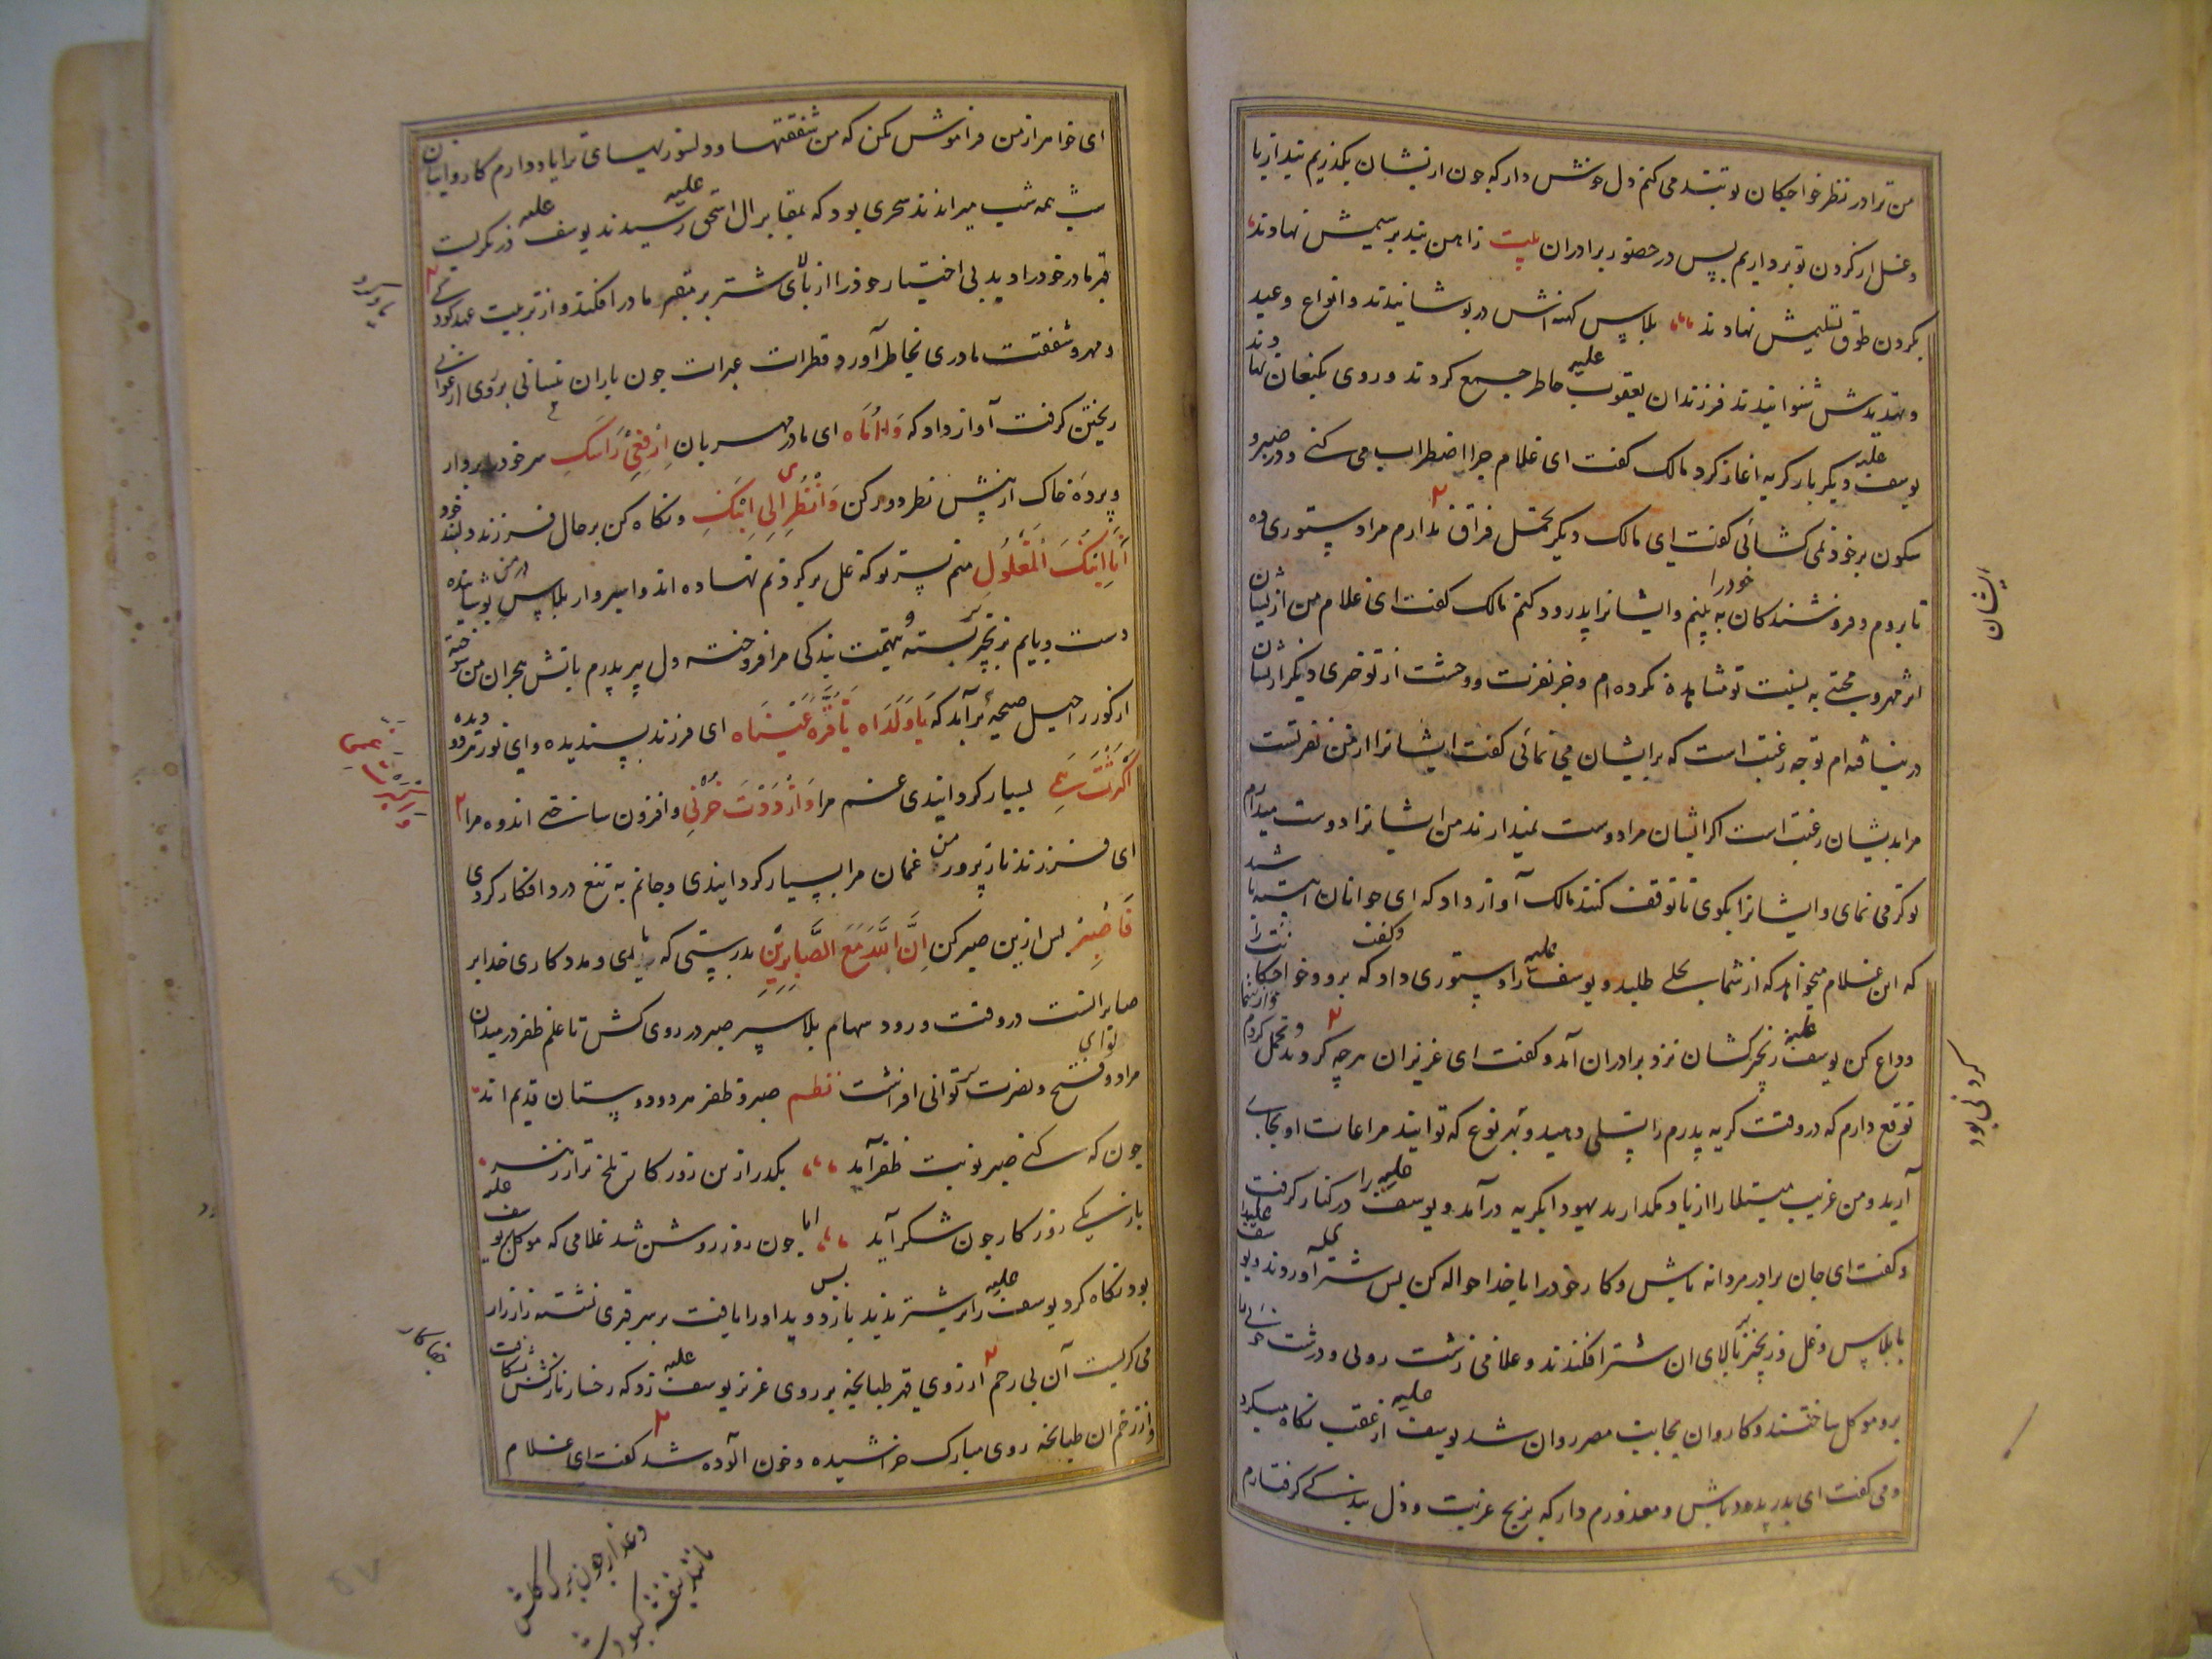 من ترا در نظر خواجکان تو تبند می کنم دل خوش دار که چون از یشان بکذریم بند از پا
و غل از کردن تو برداریم پس در حضور برادران بیت ز اهن بند بر سیمش نهادند
بکردن طوق تسلیمش نهادند بلاپس کهنه اش در پوشانیدند و انواع وعید
و تهدیدش شنوانیدند فرزندان یعقوب علیه خاطر جمع کردند و روی بکنعان نهادند
یوسف علیه دیکر بار کریه اغاز کرد مالک کفت ای غلام چرا اضطراب می کنی و در صبر و
سکون بر خود نمی کشائی کفت ای مالک دیکر تحمل فراق ندارم مرا دستوری ده
تا بروم و فروشندکان خود را به بینم و ایشانرا پدرود کنم مالک کفت ای غلام من از یشان
اثر مهر و محبتی به نسبت تو مشاهده نکرده ام و جز نفرت و وحشت از تو خبری دیکر از یشان
در نیافته ام تو چه رغبتست است که برایشان می نمائی کفت ایشانرا از من نفرتست
مرا بدیشان رغبت است اکر ایشان مرا دوست نمیدارند من ایشانرا دوست میدارم
تو کرمی نمای و ایشانرا بکوی تا توقف کنند مالک آواز داد که ای جوانان
که این غلام میخواهد که از شما بحلی طلبد و یوسف علیه را دستوری داد و کفت که برو و خواجکانت را
وداع کن یوسف علیه زنجیر کشان نزد برادران آمد و کفت ای عزیزان هر چه کردید تحمل کردم
توقع دارم که در وقت کریه پدرم را تسلی دهید و بهر نوع که توانید مراعات او بجای
آرید و من غریب مبتلا را از یاد مکذارید یهودا بکریه درآمد و یوسف علیه را در کنار کرفت
و کفت ای جان برادر مردانه باش و کار خود را با خدا حواله کن پس شتر آوردند و یوسف علیه را
با بلاپس و غل و زنجیر ببالای ان شتر افکندند و غلامی زشت روئی و درشت
برو موکل ساختند و کاروان بجانب مصر روان شد یوسف علیه از عقب نکاه میکرد
و می کفت ای پدر بدرود باش و معذورم دار که برنج غربت و ذل بندکی کرفتارم
ایشان
ای خواهر از من فراموش مکن که من شفقتها و دلسوزیهای ترا یاد دارم کاروانیان
شب همه شب میراندند سحری بود که بمقابر ال اسحق علیه رسیدند یوسف علیه در نکریست
قبر مادر خود را دید بی اختیار خود را از بالای شتر بر قبر مادر افکند و از تربیت عهد کودکی
و مهر و شفقت مادری بخاطر آورد و قطرات عبرات چون باران نیسانی بر روی ارغوانی
ریختن کرفت آواز داد که وا اماه ای مادر مهربان ارفعی راسک سر خود را بردار
و پرده خاک از پیش نظر دور کن وانظری الی ابنک و نکاه کن بر حال فرزند دلبند خود
انا ابنک المغلول منم پسر تو که غل بر کردنم نهاده اند و اسیر وار بلاپس در من پوشیانیده
دست و پایم بزنجیر بسته و بتهمت بندکی مرا فروخته دل پیر پدرم باتش هجران من سوخته
از کور راحیل صیحه برآمد که یا ولداه یا قرة عیناه ای فرزند پسندیده و ای نور هر دو دیده
اکثرت همی بسیار کردانیدی غم مرا وازددت حزنی و افزون ساختی اندوه مرا
ای فرزند ناز پرور من غمان مرا بسیار کردانیدی و جانم به تیغ درد افکار کردی
فاصبر پس ازین صبر کن ان الله مع الصابرین بدرستی که یاری و مددکاری خدا بر
صابرانست در وقت ورود سهام بلا سپر صبر در روی کش تا علم ظفر در میدان
مراد و فتح و نصرت توانی افراشت نظم صبر و ظفر هر دو دوستان قدیم اند
چون که کنی صبر نوبت ظفر آید بکذر ازین روزکار تلخ تر از زهر
بار یکی روزکار چون شکر آید اما چون روز روشن شد غلامی که موکل یوسف علیه
بود نکاه کرد یوسف علیه را بر شتر ندید باز دوید پس او را یافت بر سر قبری نشسته زار زار
می کریست آن بی رحم از روی قهر طبانچه بر روی عزیز یوسف علیه زد که رخسار نازکش بشکافت
و از زخم ان طبانچه روی مبارک خراشیده و خون آلوده شد کفت ای غلام
جفاکار
۵۷